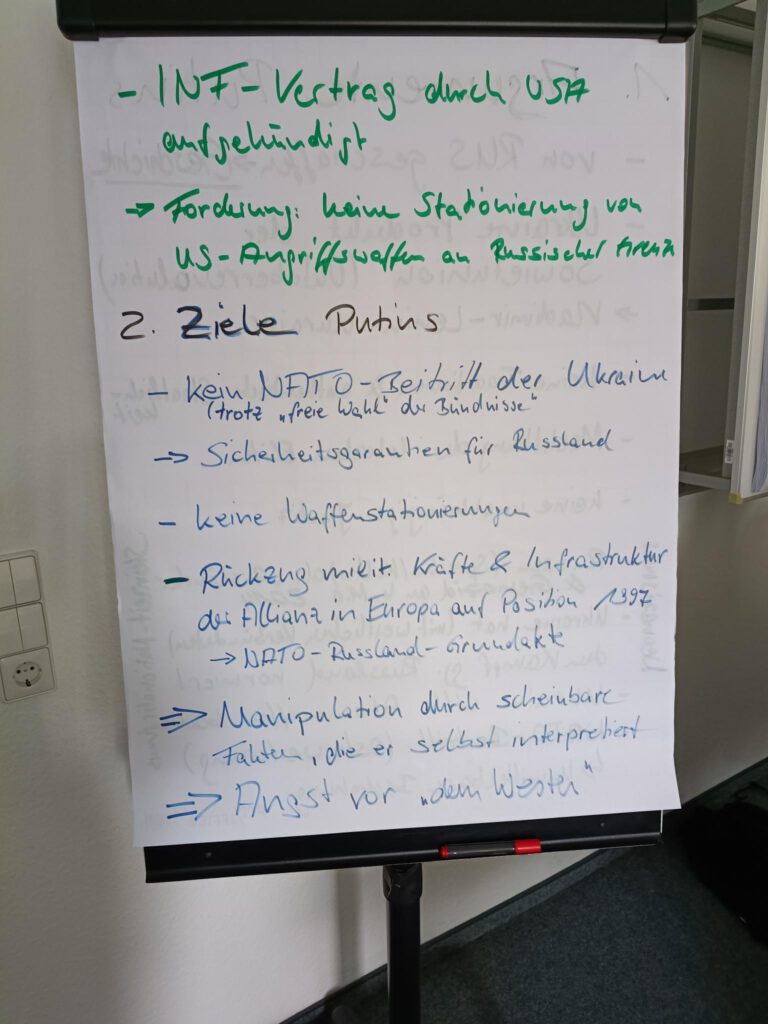 - INF-Vertrag durch USA
aufgekündigt
→ Forderung: keine Stationierung von
US-Angriffswaffen an Russischer Grenze
2. Ziele Putins
- kein NATO-Beitritt der Ukraine
(trotz „freie Wahl" der Bündnisse"
→ Sicherheitsgarantien für Russland
- keine Waffenstationierungen
- Rückzug milit. Kräfte & Infrastruktur
der Allianz in Europa auf Position 1997
→ NATO-Russland-Grundakte
⇒ Manipulation durch scheinbare
Fakten, die er selbst interpretiert
⇒ Angst vor „dem Westen"